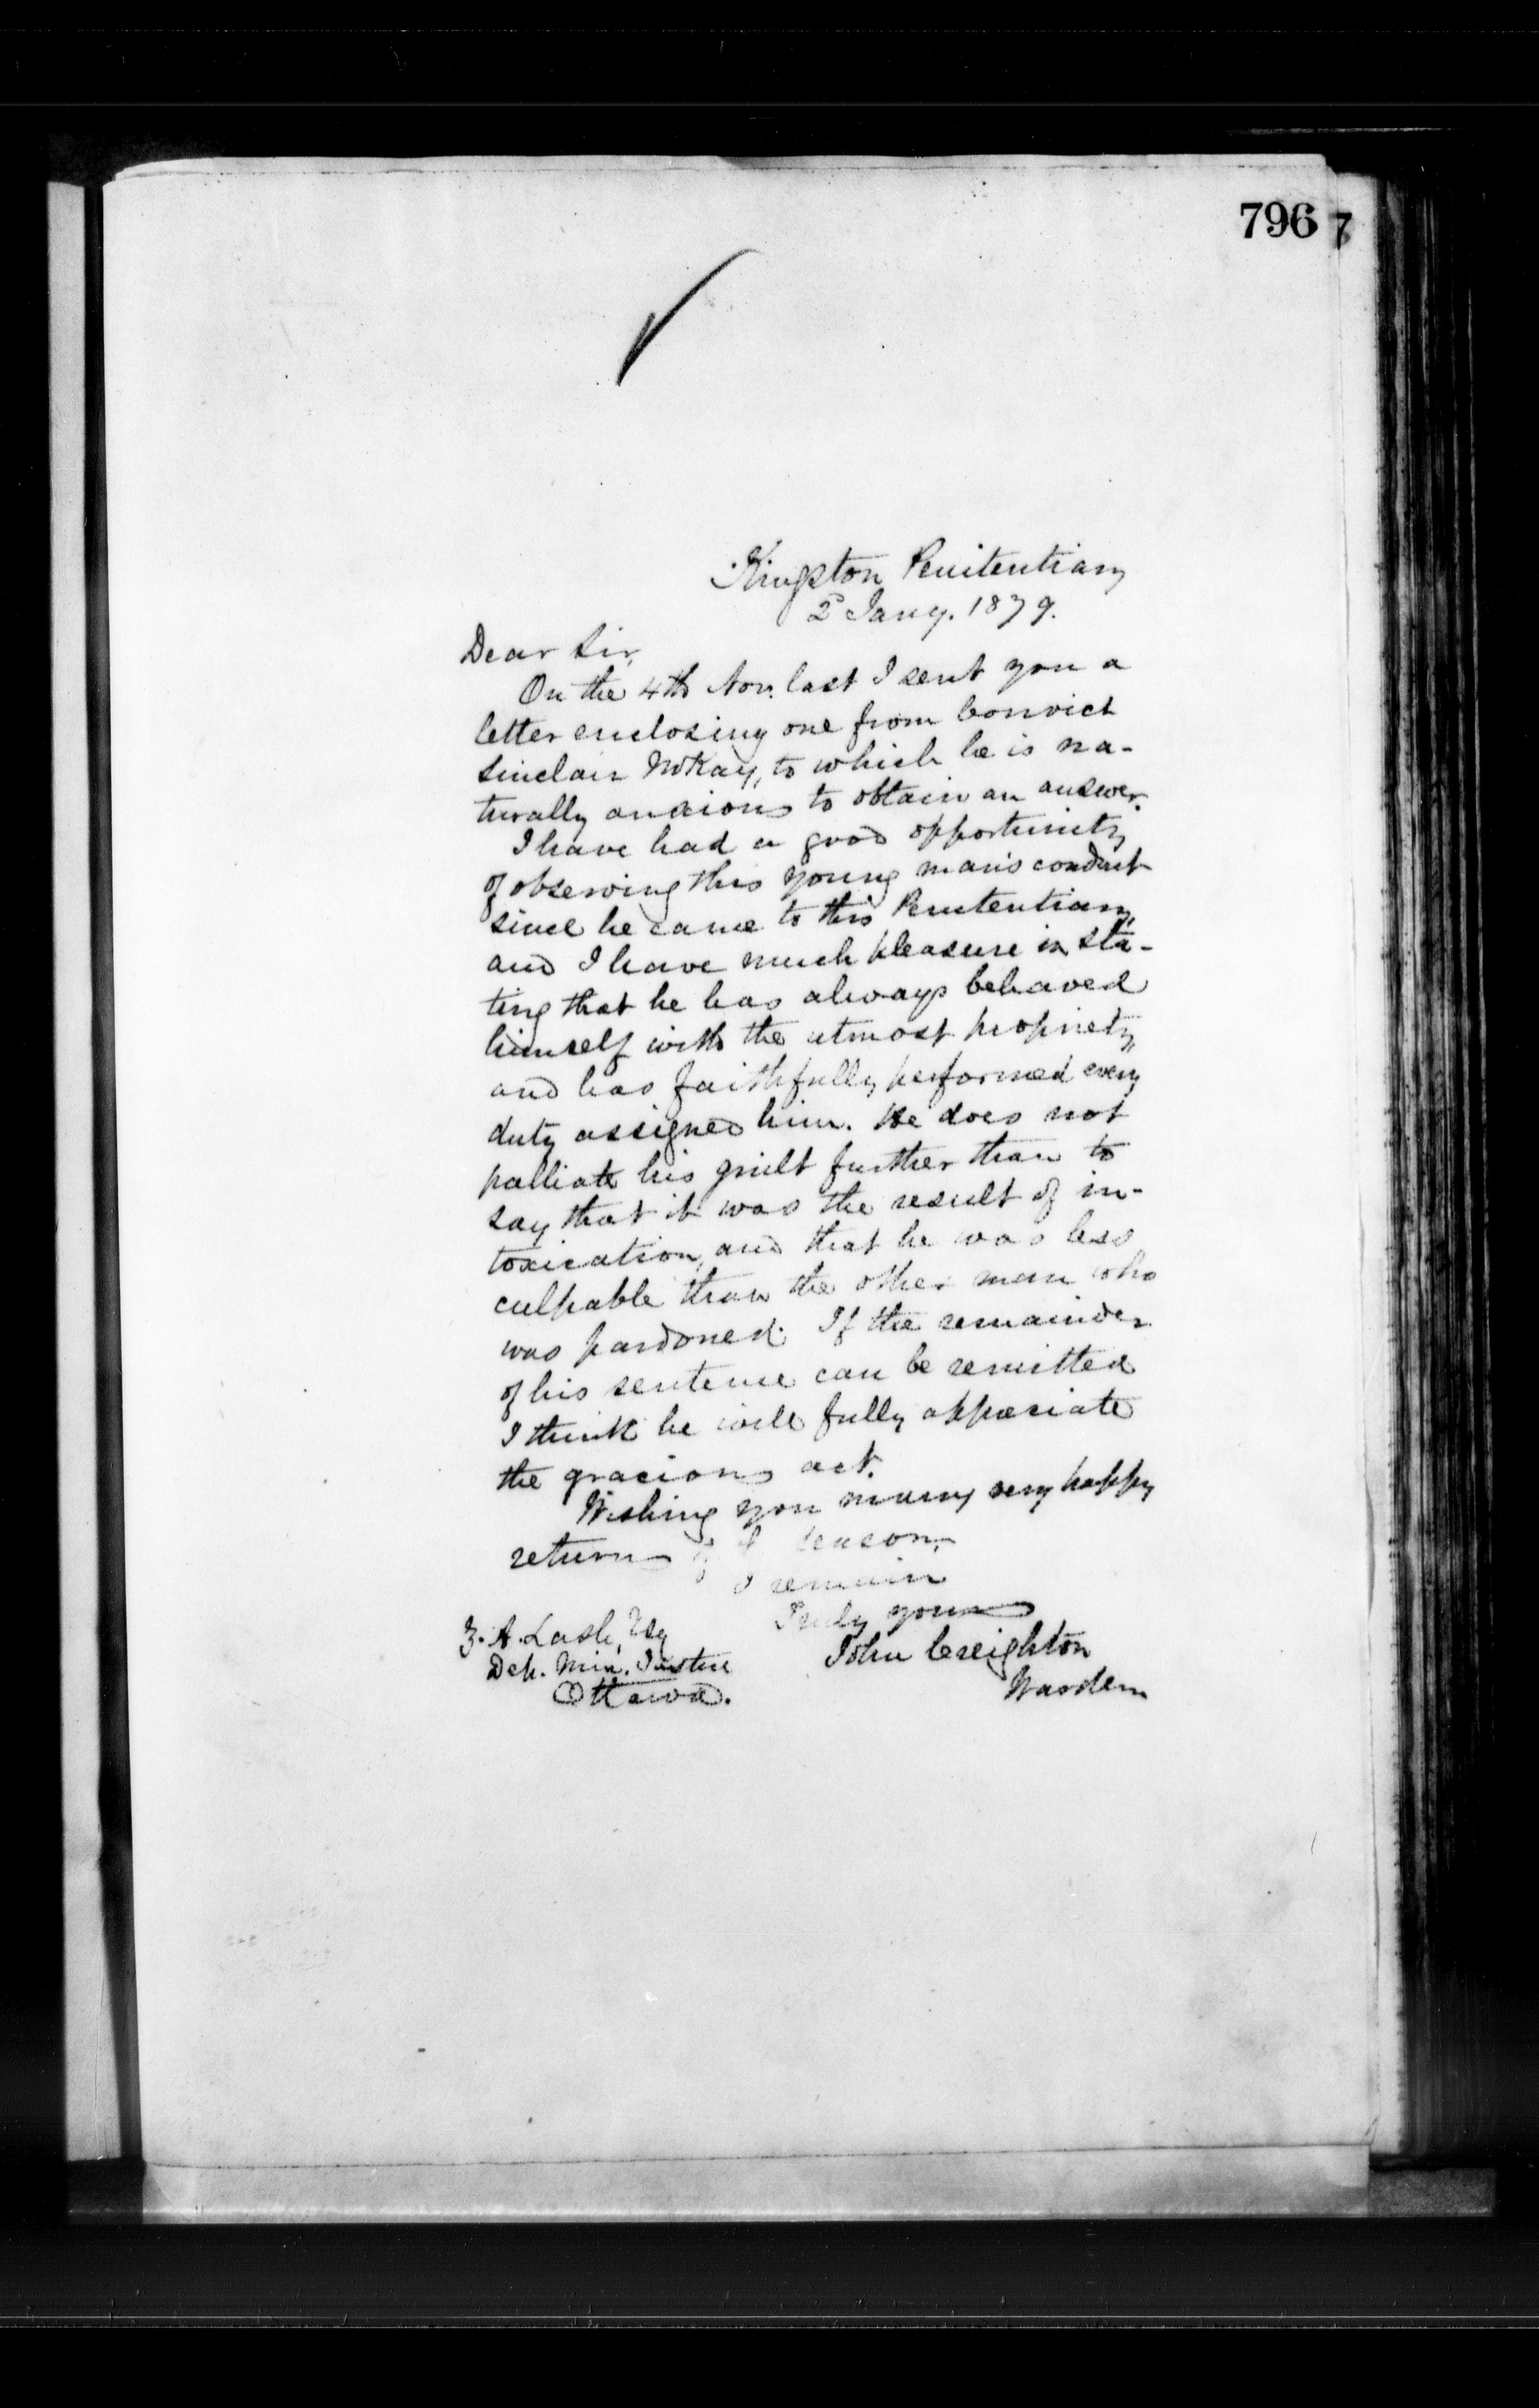 796 7
Kingston Penitentiary
2d Jany. 1879.
Dear Sir,
On the 4th Nov. last I sent you a
letter enclosing one from Convict
Sinclair McKay, to which he is na-
turally anxious to obtain an answer.
I have had a good opportunity
of observing this young man's conduct
since he came to this Penitentiary,
and I have much pleasure in sta-
ting that he has always behaved
himself with the utmost propriety,
and has faithfully performed every
duty assigned him. He does not
palliate his guilt further than to
say that it was the result of in-
toxication, and that he was less
culpable than the other man who
was pardoned. If the remainder
of his sentence can be remitted
I think he will fully appreciate
the gracious act.
Wishing you many very happy
returns of season,
I remain
Truly yours
John Creighton
Warden
Z. A. Lash, Esq
Dep. Min. Justice
Ottawa.